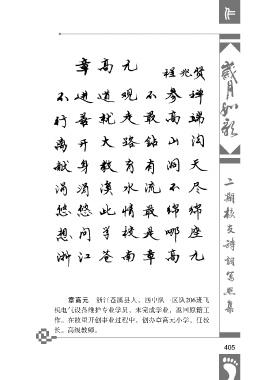 章高元
程兆贤
不进道观不参禅
行善就是最高端
离开大路钻山沟
献身教育有洞天
涓涓溪水流不尽
悠悠此情最绵绵
想问学校是哪座
浙江苍南章高元
章高元 浙江苍溪县人，四中队一区队206班飞
机电气设备维护专业学员。未完成学业，返回原籍工
作。在故里开创事业过程中，创办章高元小学，任校
长。高级教师。
岁月如歌
二期校友诗词写照集
405